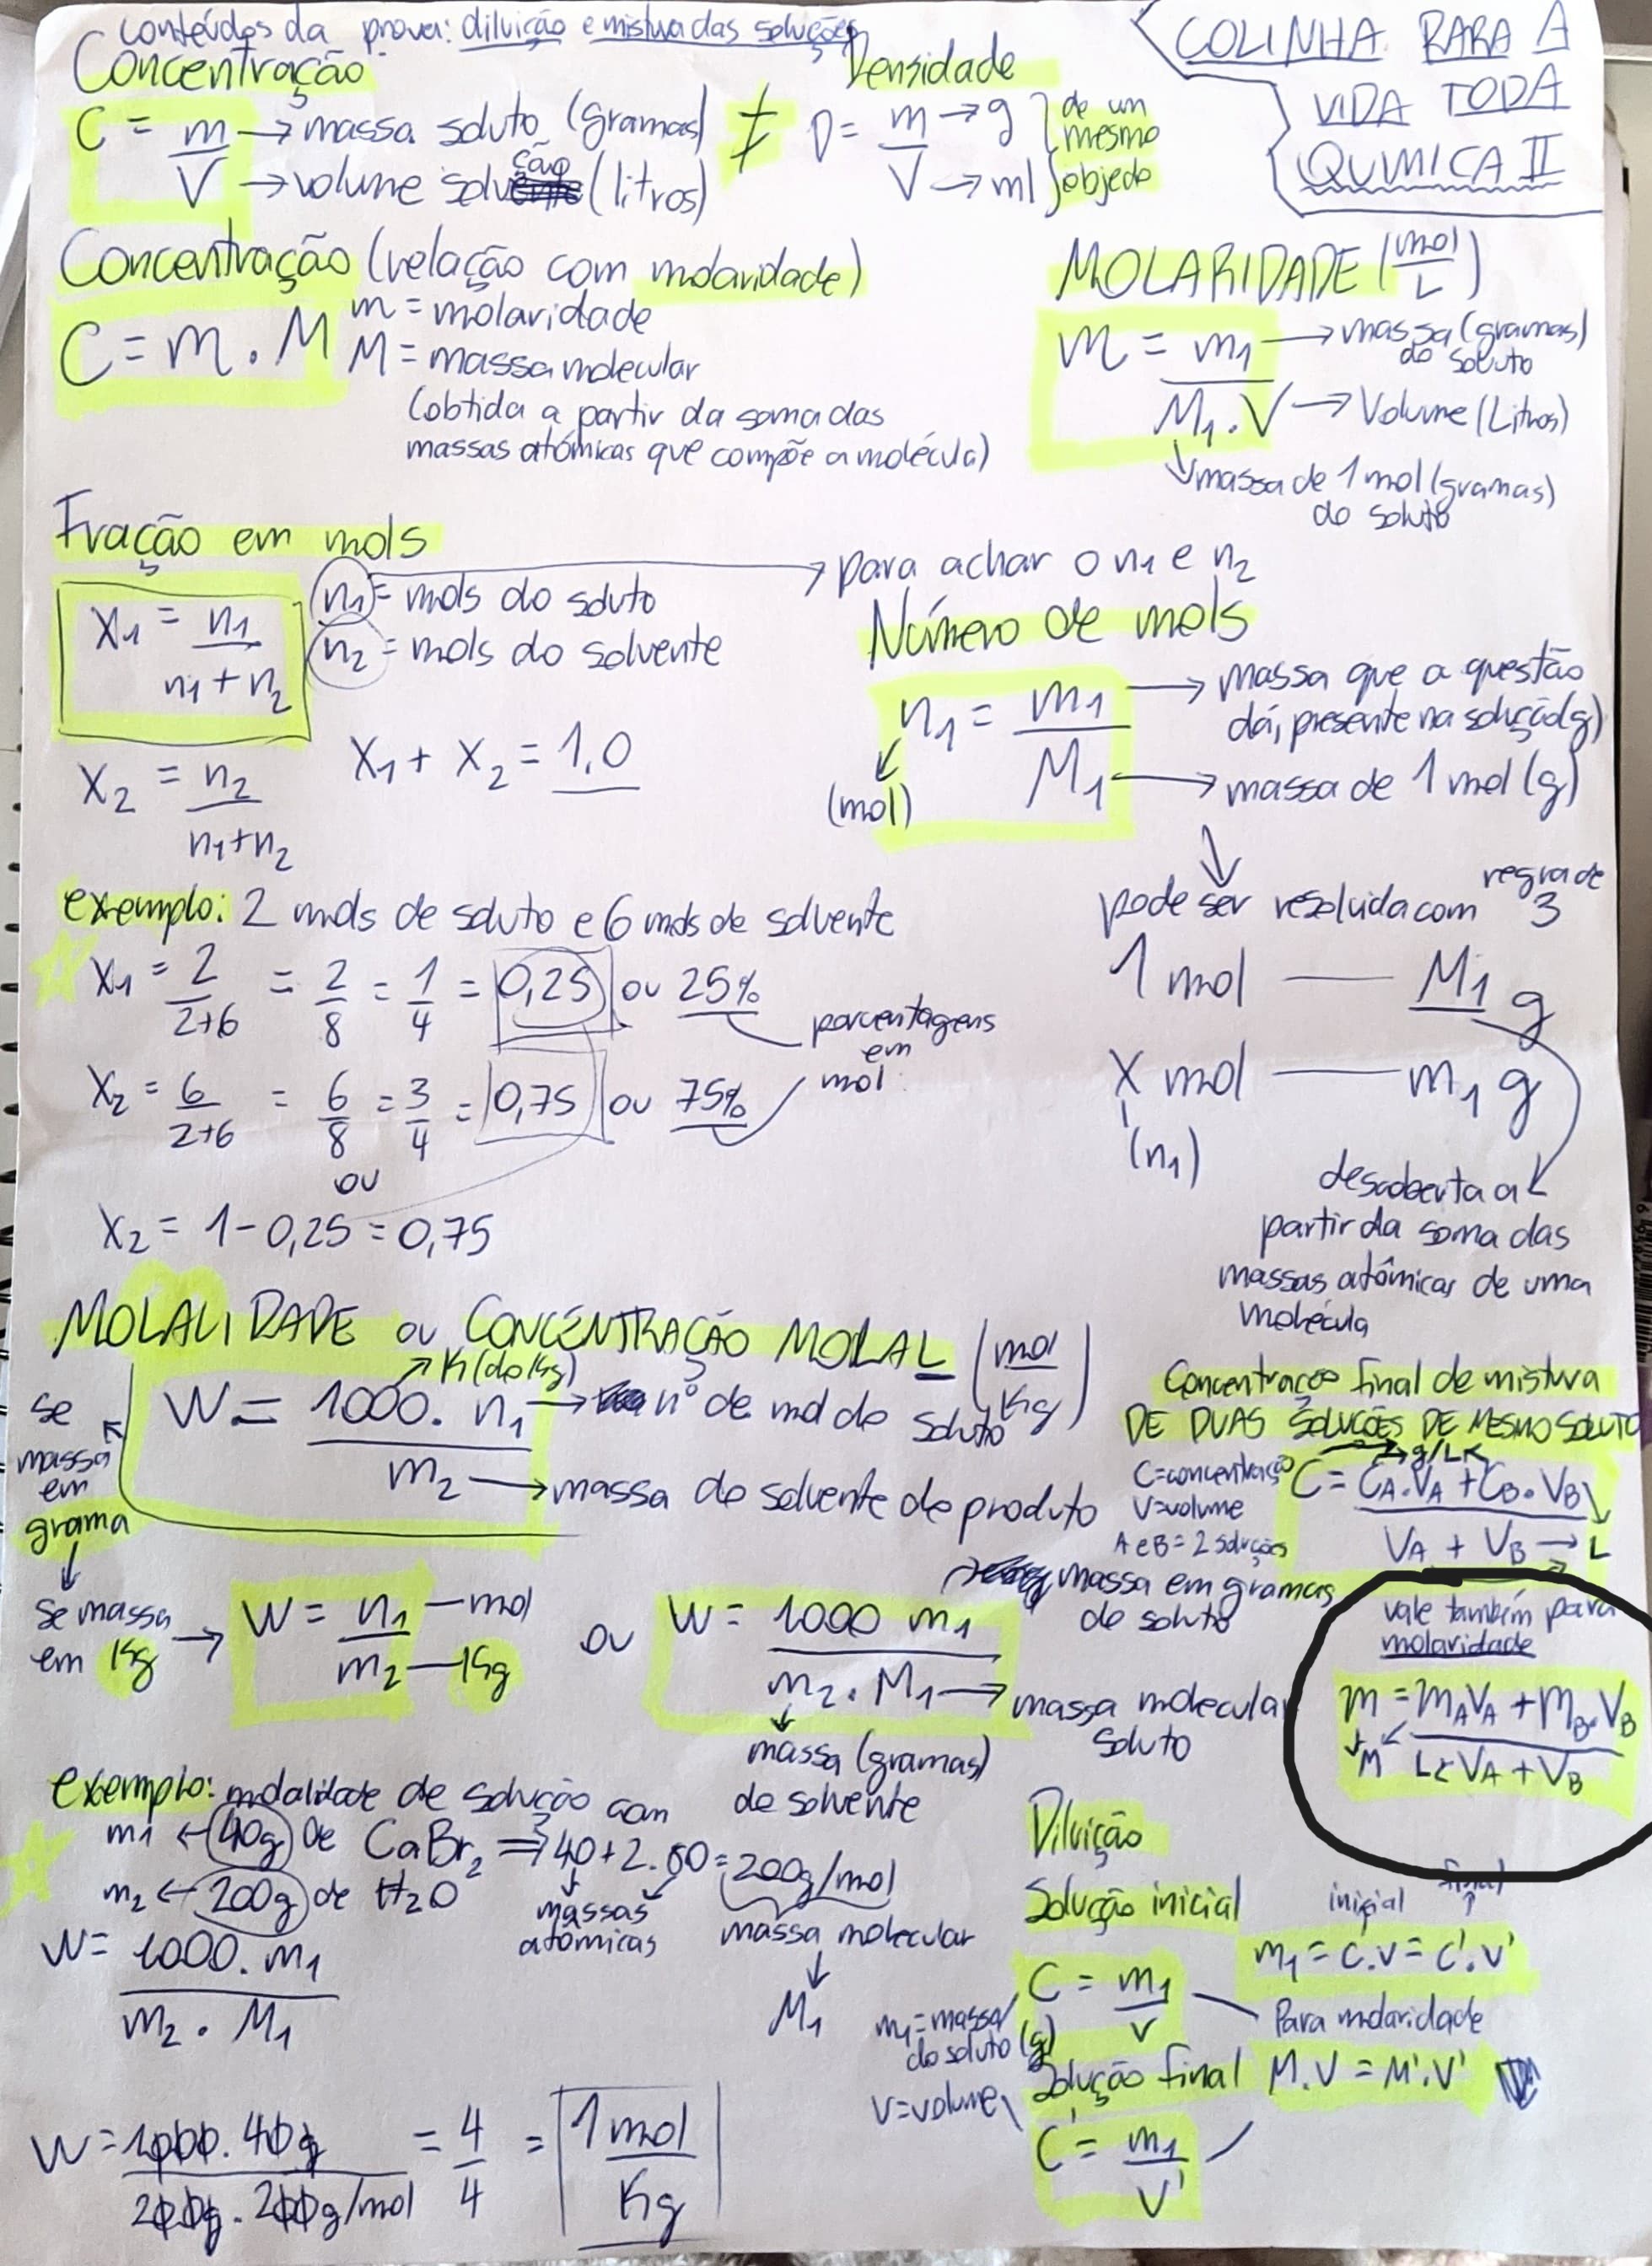 conteúdos da prova: diluição e mistua das soluções
COLINHA PARA A
VIDA TODA
QUIMICA II
Concentração
C = m → massa soluto (gramas)
V → volume solução (litros)
≠
Densidade
D = m → g
V → ml
de um
mesmo
objedo
Concentração (relação com molaridade)
C = m . M
m = molaridade
M = massa molecular
(obtida a partir da soma das
massas atómicas que compõe a molécula)
MOLARIDADE (mol/L)
m = m1 → massa (gramas)
do soluto
M1 . V → Volume (Litros)
↓ massa de 1 mol (gramas)
do soluto
Fração em mols
X1 = n1
n1 + n2
n1 = mols do soluto
n2 = mols do solvente
X2 = n2
n1 + n2
X1 + X2 = 1,0
→ para achar o n1 e n2
Número de mols
n1 = m1 → massa que a questão
dá, presente na solução (g)
M1 → massa de 1 mol (g)
(mol)
pode ser resolvida com regra de 3
1 mol — M1 g
X mol — m1 g
(n1)
descoberta a
partir da soma das
massas atômicas de uma
molécula
exemplo: 2 mols de soluto e 6 mols de solvente
X1 = 2/2+6 = 2/8 = 1/4 = 0,25 ou 25%
porcentagens
em
mol
X2 = 6/2+6 = 6/8 = 3/4 = 0,75 ou 75%
ou
X2 = 1 - 0,25 = 0,75
MOLALIDADE ou CONCENTRAÇÃO MOLAL (mol/Kg)
se
massa
em
grama
K (do Kg)
W = 1000 . n1 → nº de mol do soluto
m2 → massa do solvente do produto
se massa
em Kg → W = n1 — mol
m2 — Kg
ou
W = 1000 m1
m2 . M1 → massa molecular
soluto
massa em gramas
de soluto
massa (gramas)
do solvente
Concentração final de mistura
DE DUAS SOLUÇÕES DE MESMO SOLUTO
C = concentração
V = volume
A e B = 2 soluções
g/L
C = CA . VA + CB . VB
VA + VB → L
vale também para
molaridade
m = mA VA + mB . VB
M L VA + VB
exemplo: molalidade de solução com
m1 ← 40g de CaBr2 ⇒ 40 + 2 . 80 = 200g/mol
m2 ← 200g de H2O
massas
atômicas
massa molecular
↓
M1
W = 1000 . m1
m2 . M1
W = 1000 . 40g = 4 = 1 mol
200g . 200g/mol 4 Kg
Diluição
Solução inicial
C = m1
V
m1 = massa
do soluto (g)
V = volume
inicial final
m1 = C . V = C' . V'
Para molaridade
M . V = M' . V'
Solução final
C' = m1
V'